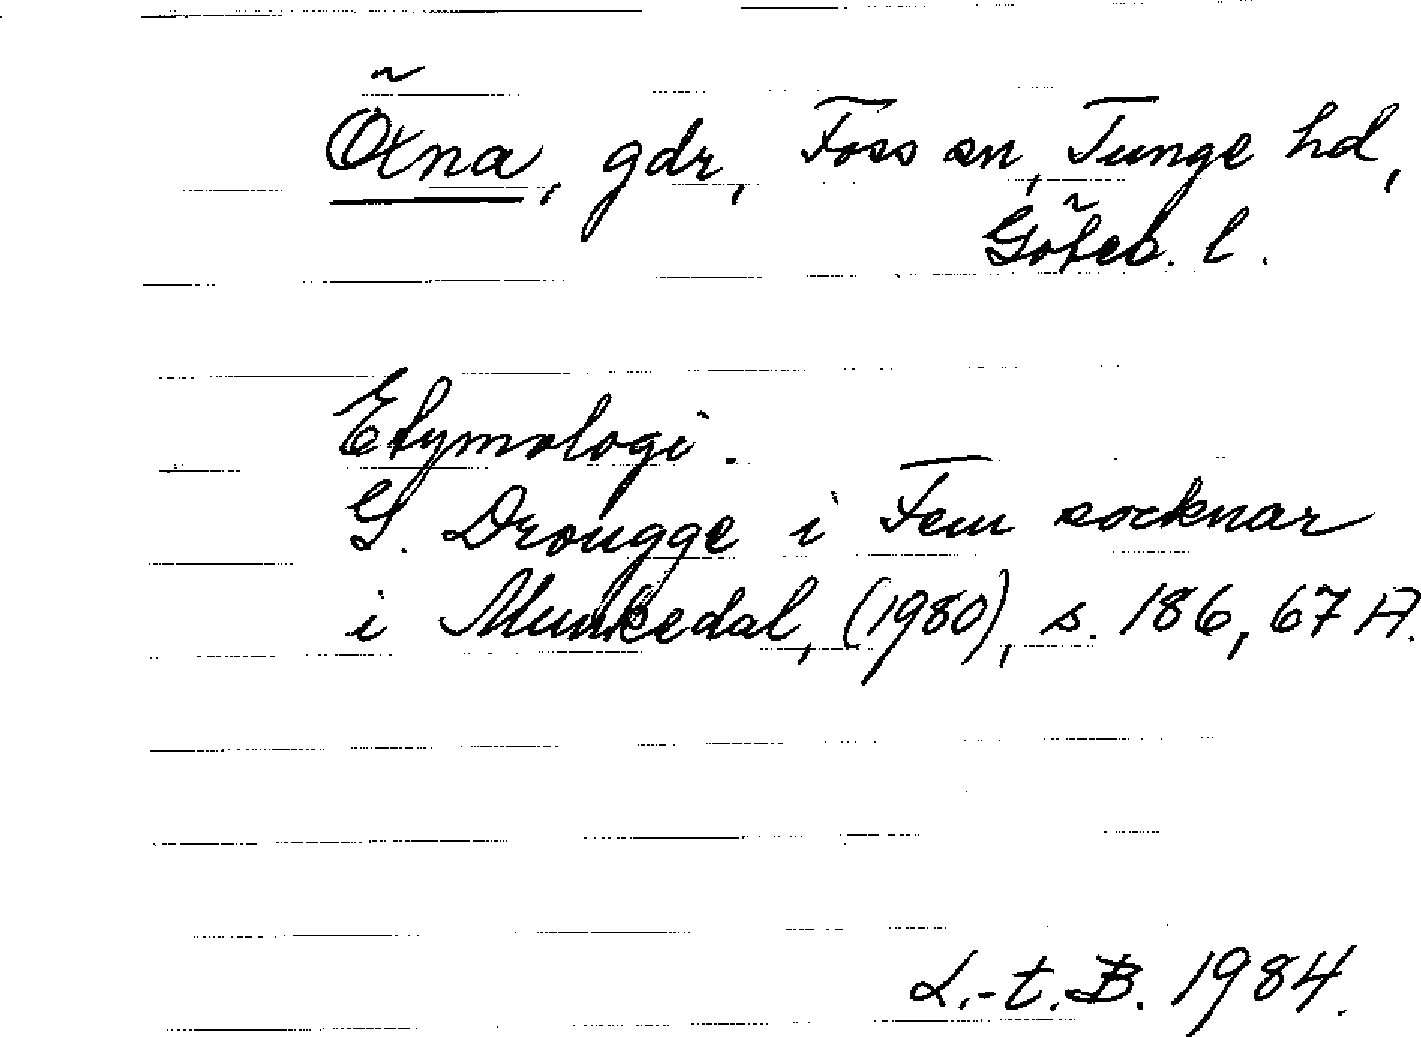 Öxna, gdr, Foss sn, Tunge hd,
Göteb. l.
Etymologi.
G. Drougge i Fem socknar
i Munkedal, (1980), s. 186, 67 A.
L.-t. B. 1984.